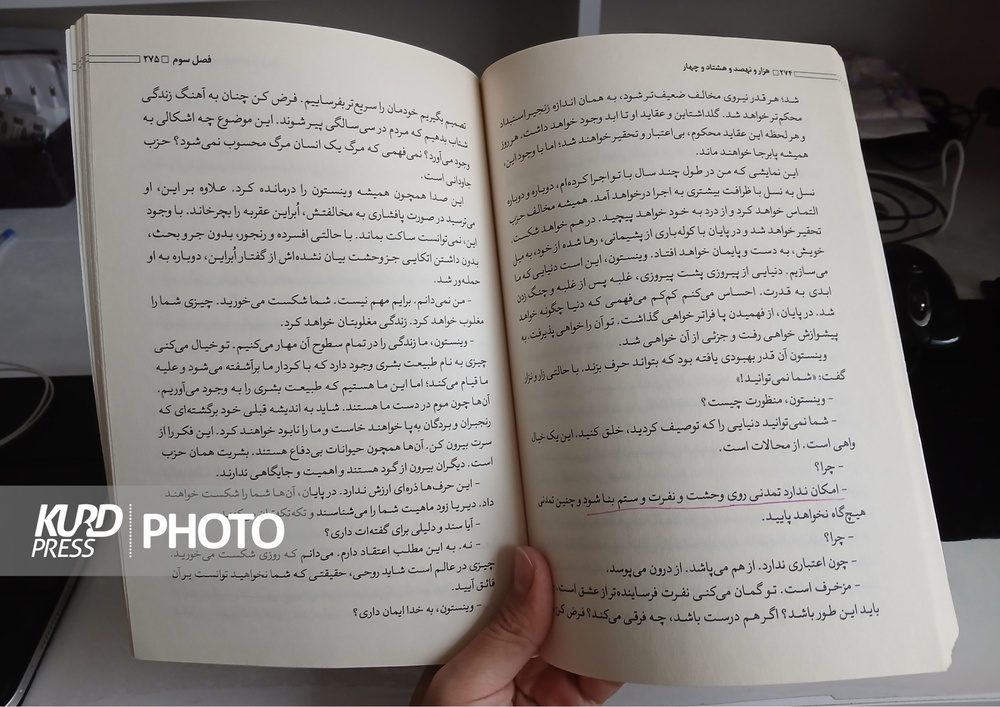 ۲۷۴ هزار و نهصد و هشتاد و چهار
شد؛ هر قدر نیروی مخالف ضعیف‌تر شود، به همان اندازه زنجیر استبداد
محکم‌تر خواهد شد. گلداشتاین و عقاید او تا ابد وجود خواهد داشت. هر روز
و هر لحظه این عقاید محکوم، بی‌اعتبار و تحقیر خواهند شد؛ اما با وجود این،
همیشه پابرجا خواهند ماند.
این نمایشی که من در طول چند سال با تو اجرا کرده‌ام، دوباره و دوباره
نسل به نسل با ظرافت بیشتری به اجرا درخواهد آمد. همیشه مخالف حزب
التماس خواهد کرد و از درد به خود خواهد پیچید. در هم خواهد شکست.
تحقیر خواهد شد و در پایان با کوله‌باری از پشیمانی، رها شده از خود، به میل
خویش، به دست و پایمان خواهد افتاد. وینستون، این است دنیایی که ما
می‌سازیم. دنیایی از پیروزی پشت پیروزی، غلبه پس از غلبه و چنگ زدن
ابدی به قدرت. احساس می‌کنم کم‌کم می‌فهمی که دنیا چگونه خواهد
شد. در پایان، از فهمیدن پا فراتر خواهی گذاشت. تو آن را خواهی پذیرفت. به
پیشوازش خواهی رفت و جزئی از آن خواهی شد.
وینستون آن قدر بهبودی یافته بود که بتواند حرف بزند. با حالتی زار و نزار
گفت: «شما نمی‌توانید!»
- وینستون، منظورت چیست؟
- شما نمی‌توانید دنیایی را که توصیف کردید، خلق کنید. این یک خیال
واهی است. از محالات است.
- چرا؟
- امکان ندارد تمدنی روی وحشت و نفرت و ستم بنا شود و چنین تمدنی
هیچ‌گاه نخواهد پایید.
- چرا؟
- چون اعتباری ندارد. از هم می‌پاشد. از درون می‌پوسد.
- مزخرف است. تو گمان می‌کنی نفرت فرساینده‌تر از عشق است.
باید این طور باشد؟ اگر هم درست باشد، چه فرقی می‌کند؟ فرض کن
فصل سوم ۲۷۵
تصمیم بگیریم خودمان را سریع‌تر بفرساییم. فرض کن چنان به آهنگ زندگی
شتاب بدهیم که مردم در سی سالگی پیر شوند. این موضوع چه اشکالی به
وجود می‌آورد؟ نمی‌فهمی که مرگ یک انسان مرگ محسوب نمی‌شود؟ حزب
جاودانی است.
این صدا همچون همیشه وینستون را درمانده کرد. علاوه بر این، او
می‌ترسید در صورت پافشاری به مخالفتش، اُبراین عقربه را بچرخاند. با وجود
این، نمی‌توانست ساکت بماند. با حالتی افسرده و رنجور، بدون جر و بحث،
بدون داشتن اتکایی جز وحشت بیان نشده‌اش از گفتار اُبراین، دوباره به او
حمله‌ور شد.
- من نمی‌دانم. برایم مهم نیست. شما شکست می‌خورید. چیزی شما را
مغلوب خواهد کرد. زندگی مغلوبتان خواهد کرد.
- وینستون، ما زندگی را در تمام سطوح آن مهار می‌کنیم. تو خیال می‌کنی
چیزی به نام طبیعت بشری وجود دارد که با کردار ما برآشفته می‌شود و علیه
ما قیام می‌کند؛ اما این ما هستیم که طبیعت بشری را به وجود می‌آوریم.
آن‌ها چون موم در دست ما هستند. شاید به اندیشه قبلی خود برگشته‌ای که
رنجبران و بردگان به‌پا خواهند خاست و ما را نابود خواهند کرد. این فکر را از
سرت بیرون کن. آن‌ها همچون حیوانات بی‌دفاع هستند. بشریت همان حزب
است. دیگران بیرون از گود هستند و اهمیت و جایگاهی ندارند.
- این حرف‌ها ذره‌ای ارزش ندارد. در پایان، آن‌ها شما را شکست خواهند
داد. دیر یا زود ماهیت شما را می‌شناسند و تکه‌تکه‌تان
- آیا سند و دلیلی برای گفته‌ات داری؟
- نه. به این مطلب اعتقاد دارم. می‌دانم که روزی شکست می‌خورید.
چیزی در عالم است شاید روحی، حقیقتی که شما نخواهید توانست بر آن
فائق آیید.
- وینستون، به خدا ایمان داری؟
KURD
PRESS
PHOTO